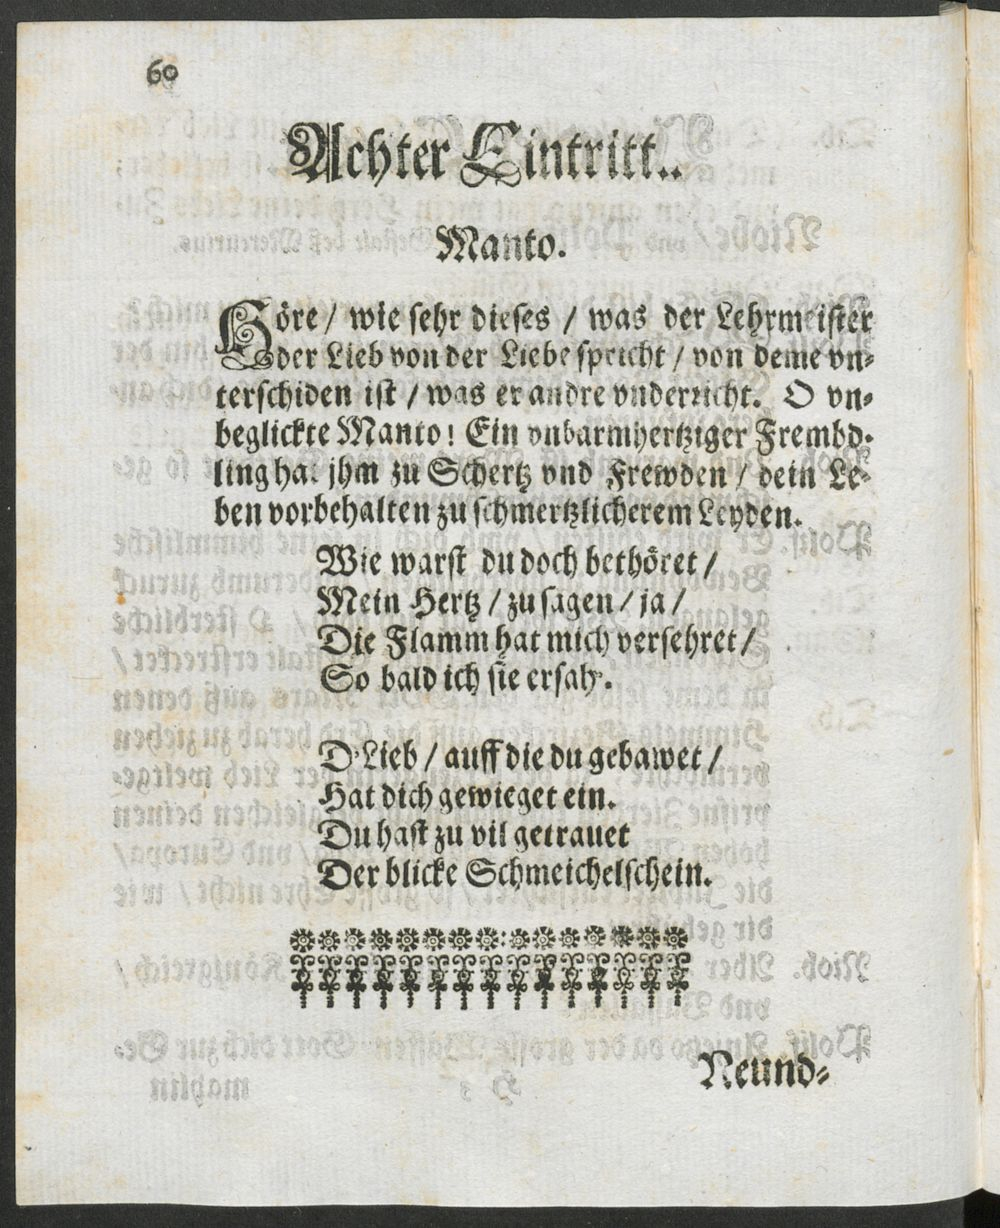 60
Achter Eintritt..
Manto.
Höre / wie sehr dieses / was der Lehrmeister
der Lieb von der Liebe spricht / von deme vn-
terschiden ist / was er andre vnderricht. O vn-
beglickte Manto! Ein vnbarmhertziger Frembd-
ling hat jhm zu Schertz vnd Frewden / dein Le-
ben vorbehalten zu schmertzlicherem Leyden.
Wie warst du doch bethöret /
Mein Hertz / zu sagen / ja /
Die Flamm hat mich versehret /
So bald ich sie ersah.
O Lieb / auff die du gebawet /
Hat dich gewieget ein.
Du hast zu vil getrauet
Der blicke Schmeichelschein.
Neund-